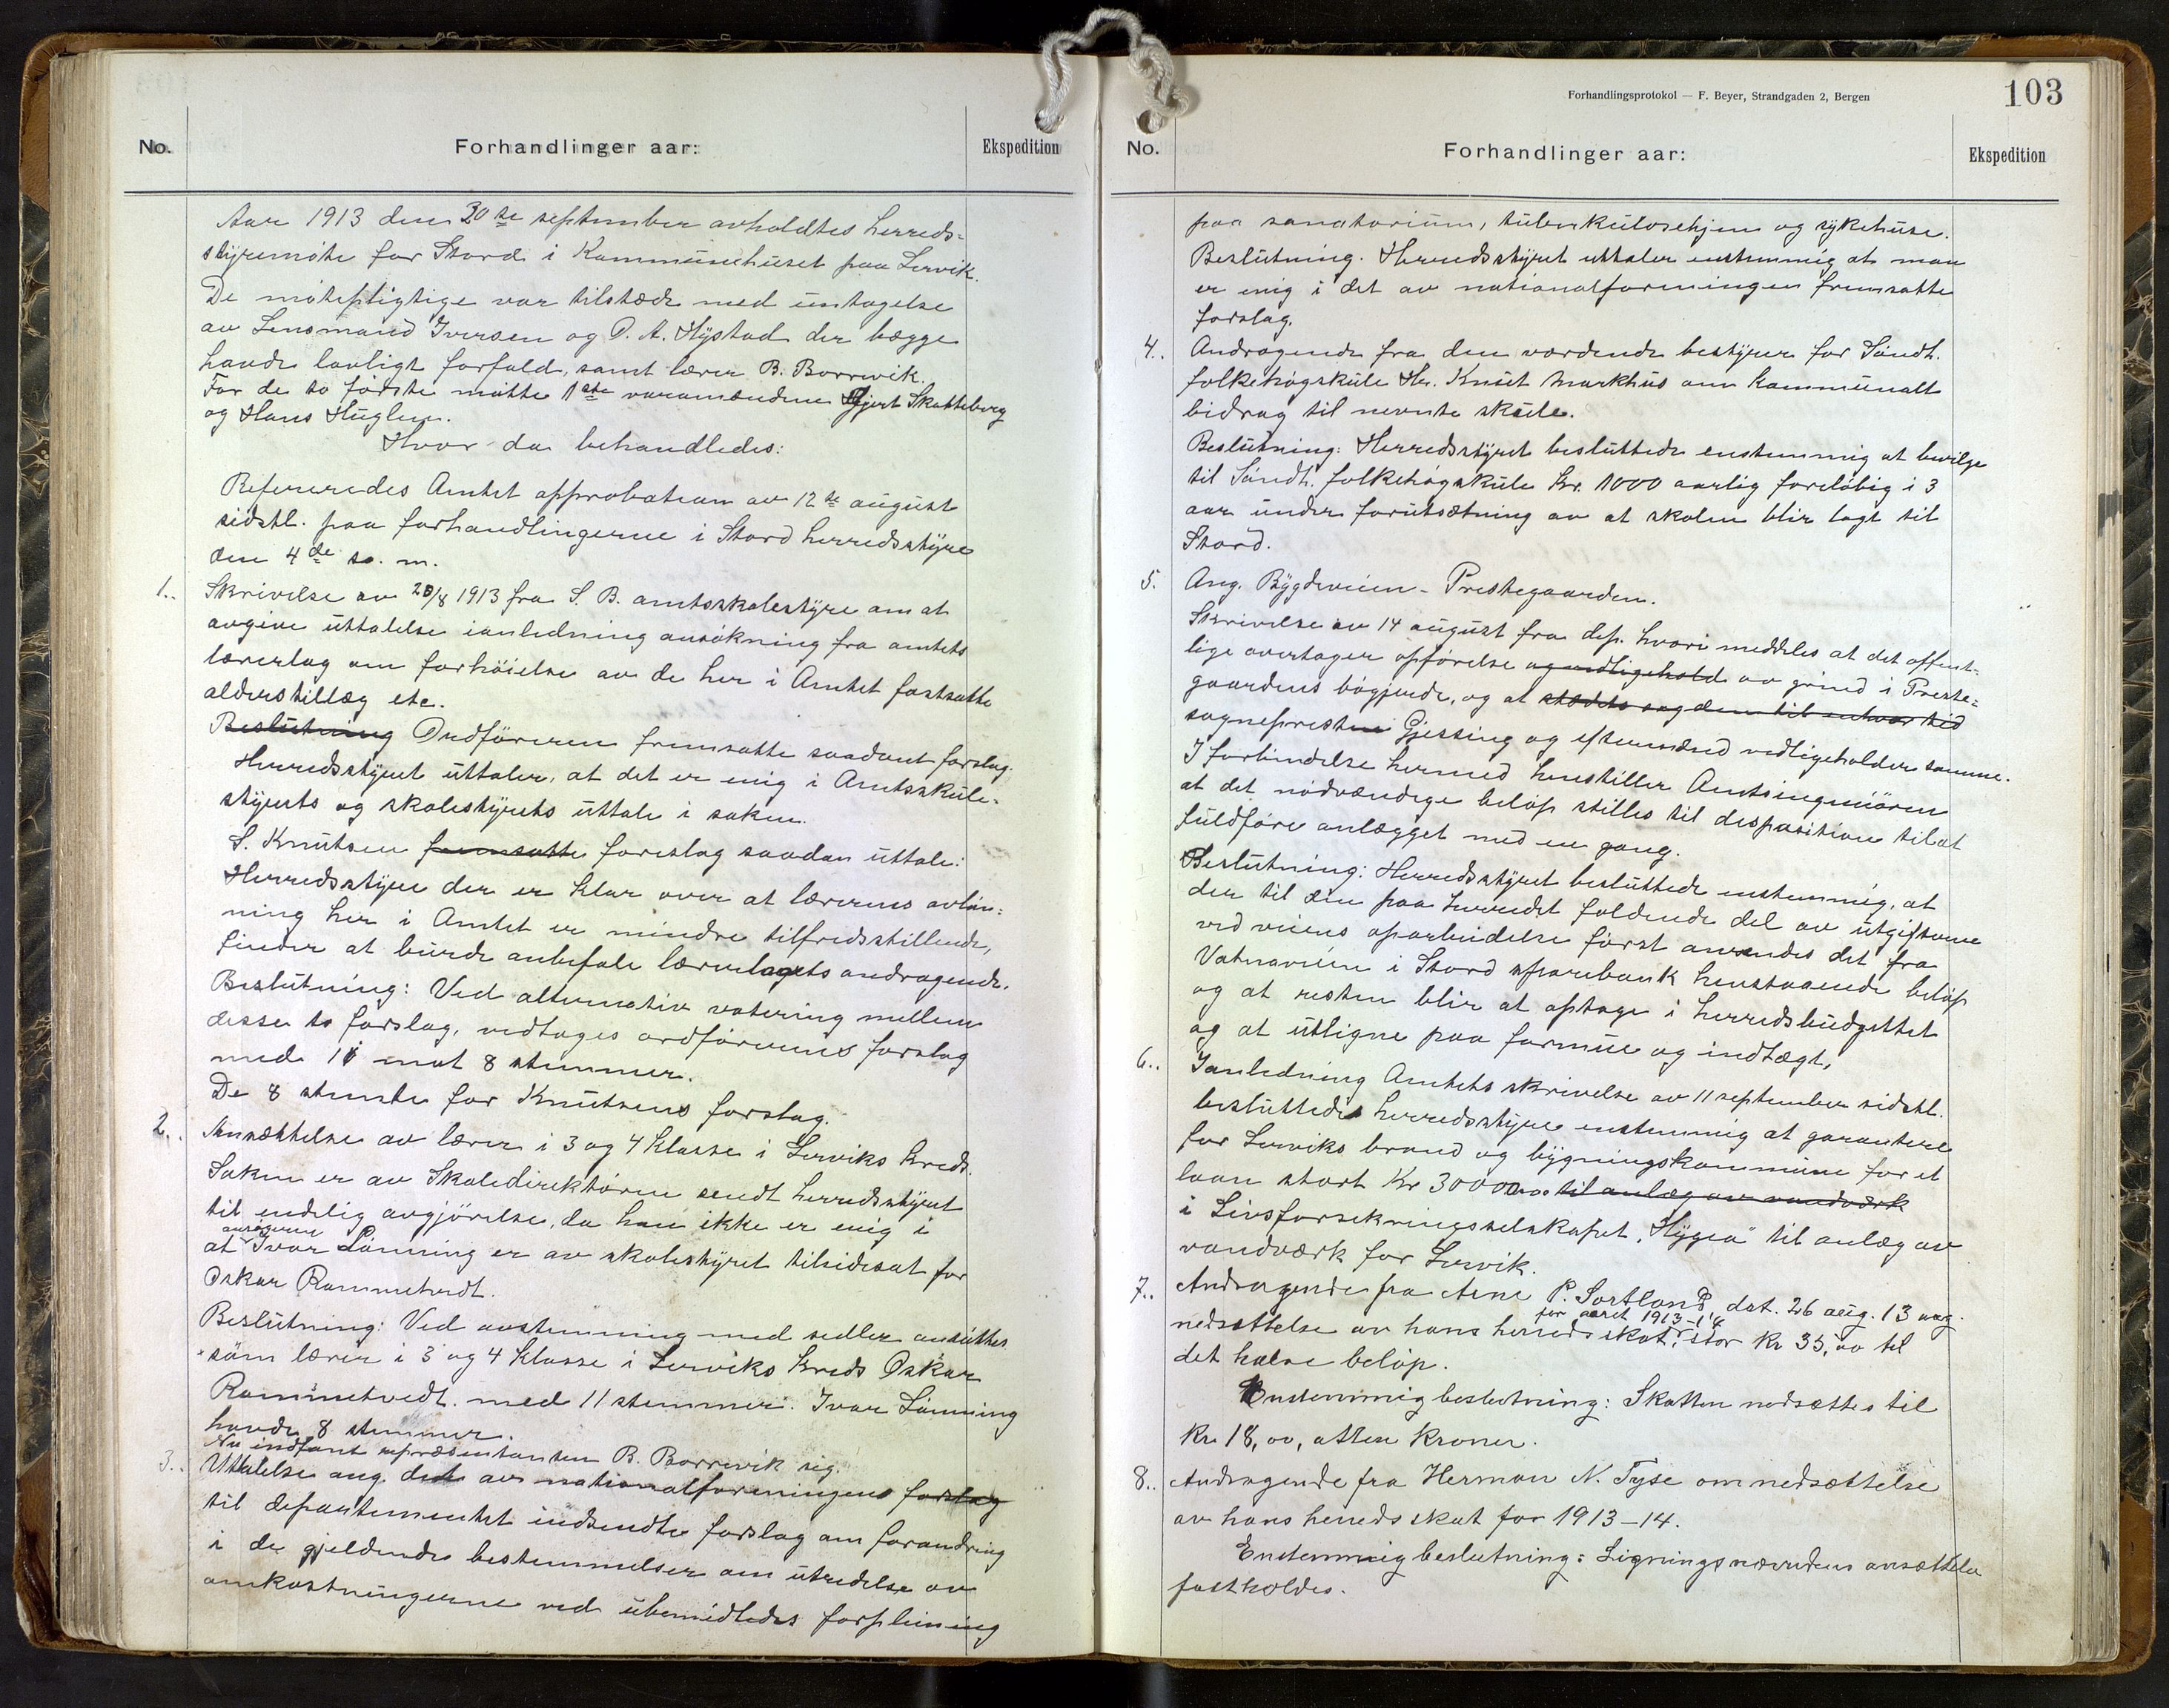 No.
Forhandlinger aar:
Ekspedition
Aar 1913 den 30te september avholdtes herreds-
styremöte for Stord i Kommunehuset paa Lervik.
De mötepligtige var tilstæde med untagelse
av Lensmand Iversen og O. A. Hystad der begge
havde lovligt forfald, samt lærer B. Borrevik.
For de to förste mötte 1ste varamændene Gjert Skatteborg
og Hans Huglen.
Hvor da behandledes:
Refereredes Amtet approbation av 12te august
sidstl. paa forhandlingerne i Stord herredsstyre
den 4de s. m.
1.. Skrivelse av 20/8 1913 fra S. B. amtsskolestyre om at
avgive uttalelse ianledning ansökning fra amtets
lærerlag om forhöielse av de her i Amtet fastsatte
alderstillæg etc.
Beslutning Ordföreren fremsatte saadant forslag:
Herredsstyret uttaler, at det er enig i Amtsskule-
styrets og skolestyrets uttale i saken.
S. Knutsen fremsatte foreslog saadan uttale:
Herredsstyre der er klar over at lærernes avlön-
ning her i Amtet er mindre tilfredsstillende,
finder at burde anbefale lærerlagets andragende.
Beslutning: Ved alternativ votering mellem
disse to forslag, vedtoges ordförerens forslag
med 11 mot 8 stemmer.
De 8 stemte for Knutsens forslag.
2.. Ansættelse av lærer i 3 og 4 klasse i Lerviks kreds.
Saken er av Skoledirektören sendt herredsstyret
til endelig avgjörelse, da han ikke er enig i
ansögeren
at Ivar Lönning er av skolestyret tilsidesat for
Oskar Rommetvedt.
Beslutning: Ved avstemning med sedler ansattes
som lærer i 3 og 4 klasse i Lerviks kreds Oskar
Rommetvedt med 11 stemmer. Ivar Lönning
havde 8 stemmer.
Nu indfant repræsentanten B. Borrevik sig.
3.. Uttalelse ang. det av nationalforeningens forslag
til departementet indsendte forslag om forandring
i de gjeldende bestemmelser om utredelse av
omkostningerne ved ubemidledes forpleining
Forhandlingsprotokol — F. Beyer, Strandgaden 2, Bergen
103
No.
Forhandlinger aar:
Ekspedition
paa sanatorium, tuberkulosehjem og sykehuse.
Beslutning. Herredsstyret uttaler enstemmig at man
er enig i det av nationalforeningen fremsatte
forslag.
4.. Andragende fra den vordende bestyrer for Söndh.
folkehögskule Hr. Knut Markhus om kommunalt
bidrag til nevnte skule.
Beslutning: Herredsstyret besluttede enstemmig at bevilge
til Söndh. folkehögskule Kr. 1000 aarlig forelöbig i 3
aar under forutsætning av at skolen blir lagt til
Stord.
5. Ang. Bygdeveien - Prestegaarden.
Skrivelse av 14 august fra dep. hvori meddeles at det offent-
lige overtager opförelse og vedligehold av grind i Preste-
gaardens bögjerde, og at stedets sogden til enhver tid
sognepresten Gjessing og eftermænd vedligeholder samme.
I forbindelse hermed henstiller Amtsingeniören
at det nödvændige belöp stilles til desposition til at
fuldföre anlægget med en gang.
Beslutning: Herredsstyret besluttede enstemmig, at
der til den paa herredet faldende del av utgifterne
ved veiens oparbeidelse först anvendes det fra
Vatnaveien i Stord sparebank henstaaende belöp
og at resten blir at optage i herredsbudgettet
og at utligne paa formue og indtægt.
6.. Ianledning Amtets skrivelse av 11 september sidstl.
besluttedes herredsstyre enstemmig at garantere
for Lerviks brand og bygningskommune for et
laan stort Kr 30000,00 til anlæg av vandværk
i Livsforsekringsselskapet "Hygea" til anlæg av
vandværk for Lervik.
7.. Andragende fra Arne P. Sortland, dat. 26 aug. 13 ang.
for aaret 1913-14
nedsættelse av hans herredsskat, stor kr 35,00 til
det halve belöp.
Enstemmig beslutning: Skatten nedsættes til
kr. 18,00, atten kroner.
8.. Andragende fra Herman N. Tyse om nedsættelse
av hans herredsskat for 1913-14.
Enstemmig beslutning: Ligningsnævndens ansættelse
fastholdes.